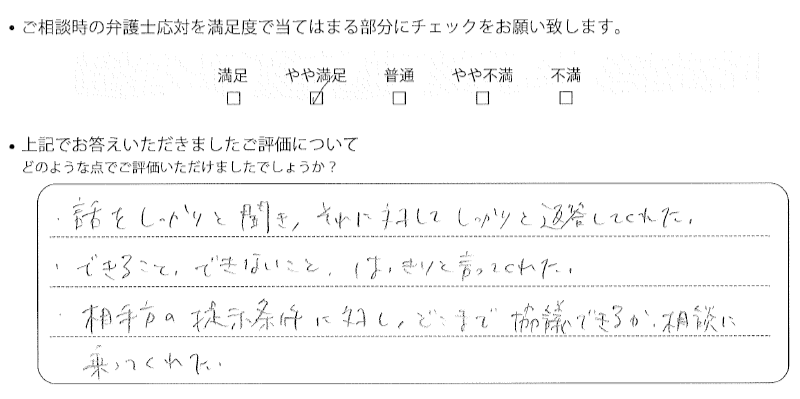 ・ご相談時の弁護士応対を満足度で当てはまる部分にチェックをお願い致します。
満足 やや満足 普通 やや不満 不満
□ ☑ □ □ □
・上記でお答えいただきましたご評価について
どのような点でご評価いただけましたでしょうか？
・話をしっかりと聞き,それに対してしっかりと返答してくれた.
・できること,できないこと,はっきりと言ってくれた.
・相手方の提示条件に対し,どこまで協議できるか,相談に
乗ってくれた.